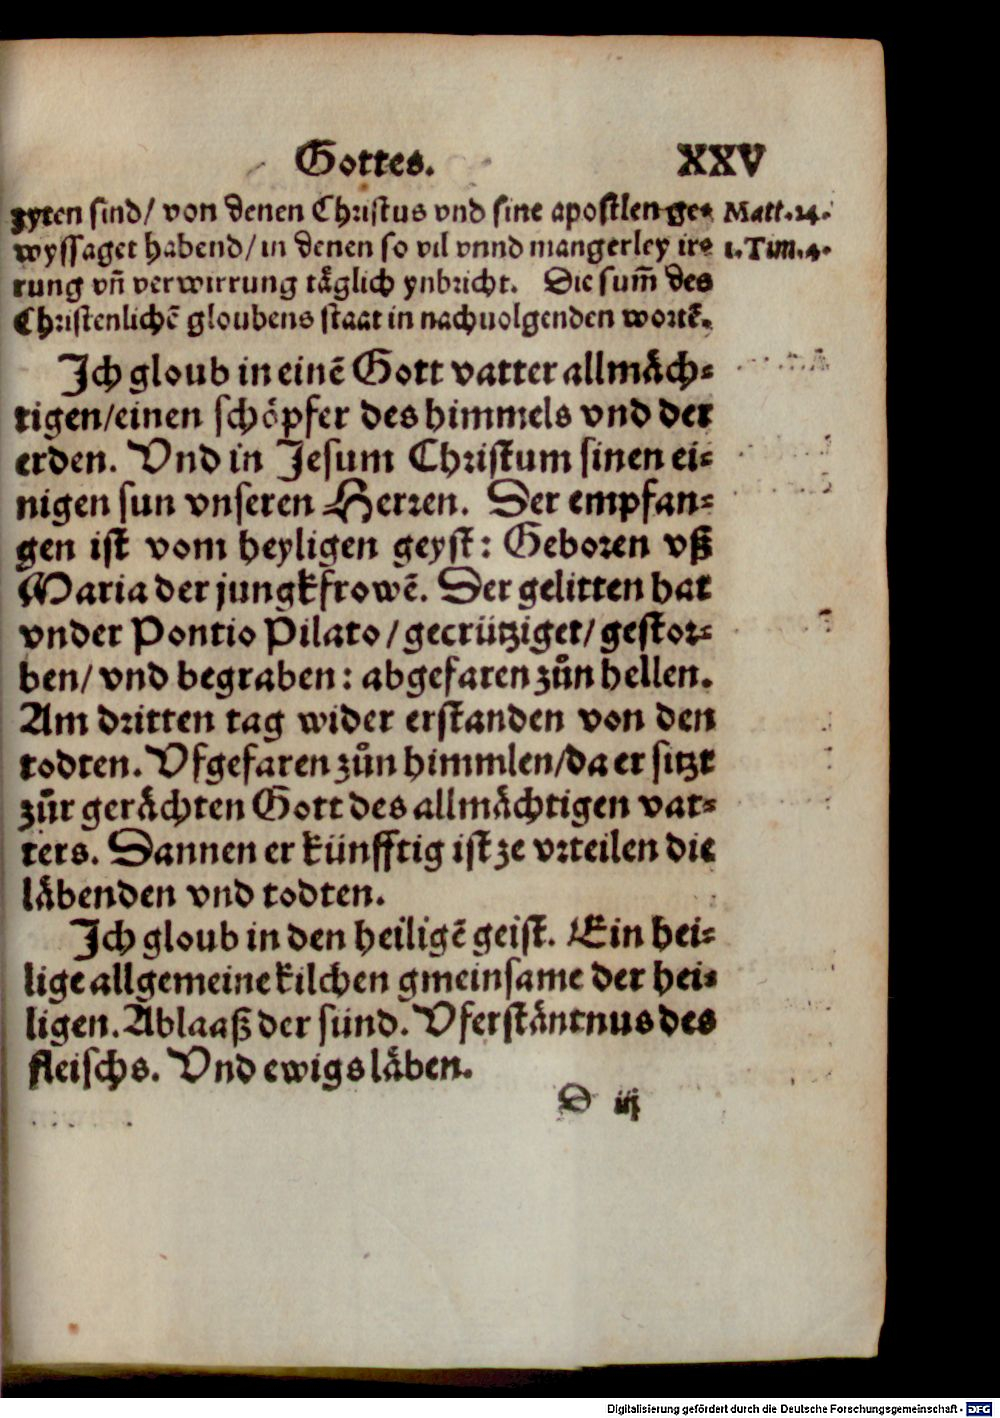 Gottes. XXV
zyten sind/ von denen Christus vnd sine apostlen ge⸗ Matt.24.
wyssaget habend/ in denen so vil vnnd mangerley ire 1.Tim.4.
rung vñ verwirrung tåglich ynbricht. Die sum̃ des
Christenlichẽ gloubens staat in nachuolgenden wortẽ.
Ich gloub in einẽ Gott vatter allmåch⸗
tigen/einen schöpfer des himmels vnd der
erden. Vnd in Jesum Christum sinen ei⸗
nigen sun vnseren Herren. Der empfan⸗
gen ist vom heyligen geyst: Geboren vß
Maria der jungkfrowẽ. Der gelitten hat
vnder Pontio Pilato/gecrütziget/gestor⸗
ben/ vnd begraben: abgefaren zůn hellen.
Am dritten tag wider erstanden von den
todten. Vfgefaren zůn himmlen/da er sitzt
zůr geråchten Gott des allmåchtigen vat⸗
ters. Dannen er künfftig ist ze vrteilen die
låbenden vnd todten.
Ich gloub in den heiligẽ geist. Ein hei⸗
lige allgemeine kilchen gmeinsame der hei⸗
ligen. Ablaaß der sünd. Vferståntnus des
fleischs. Vnd ewigs låben.
D iij
Digitalisierung gefördert durch die Deutsche Forschungsgemeinschaft - DFG